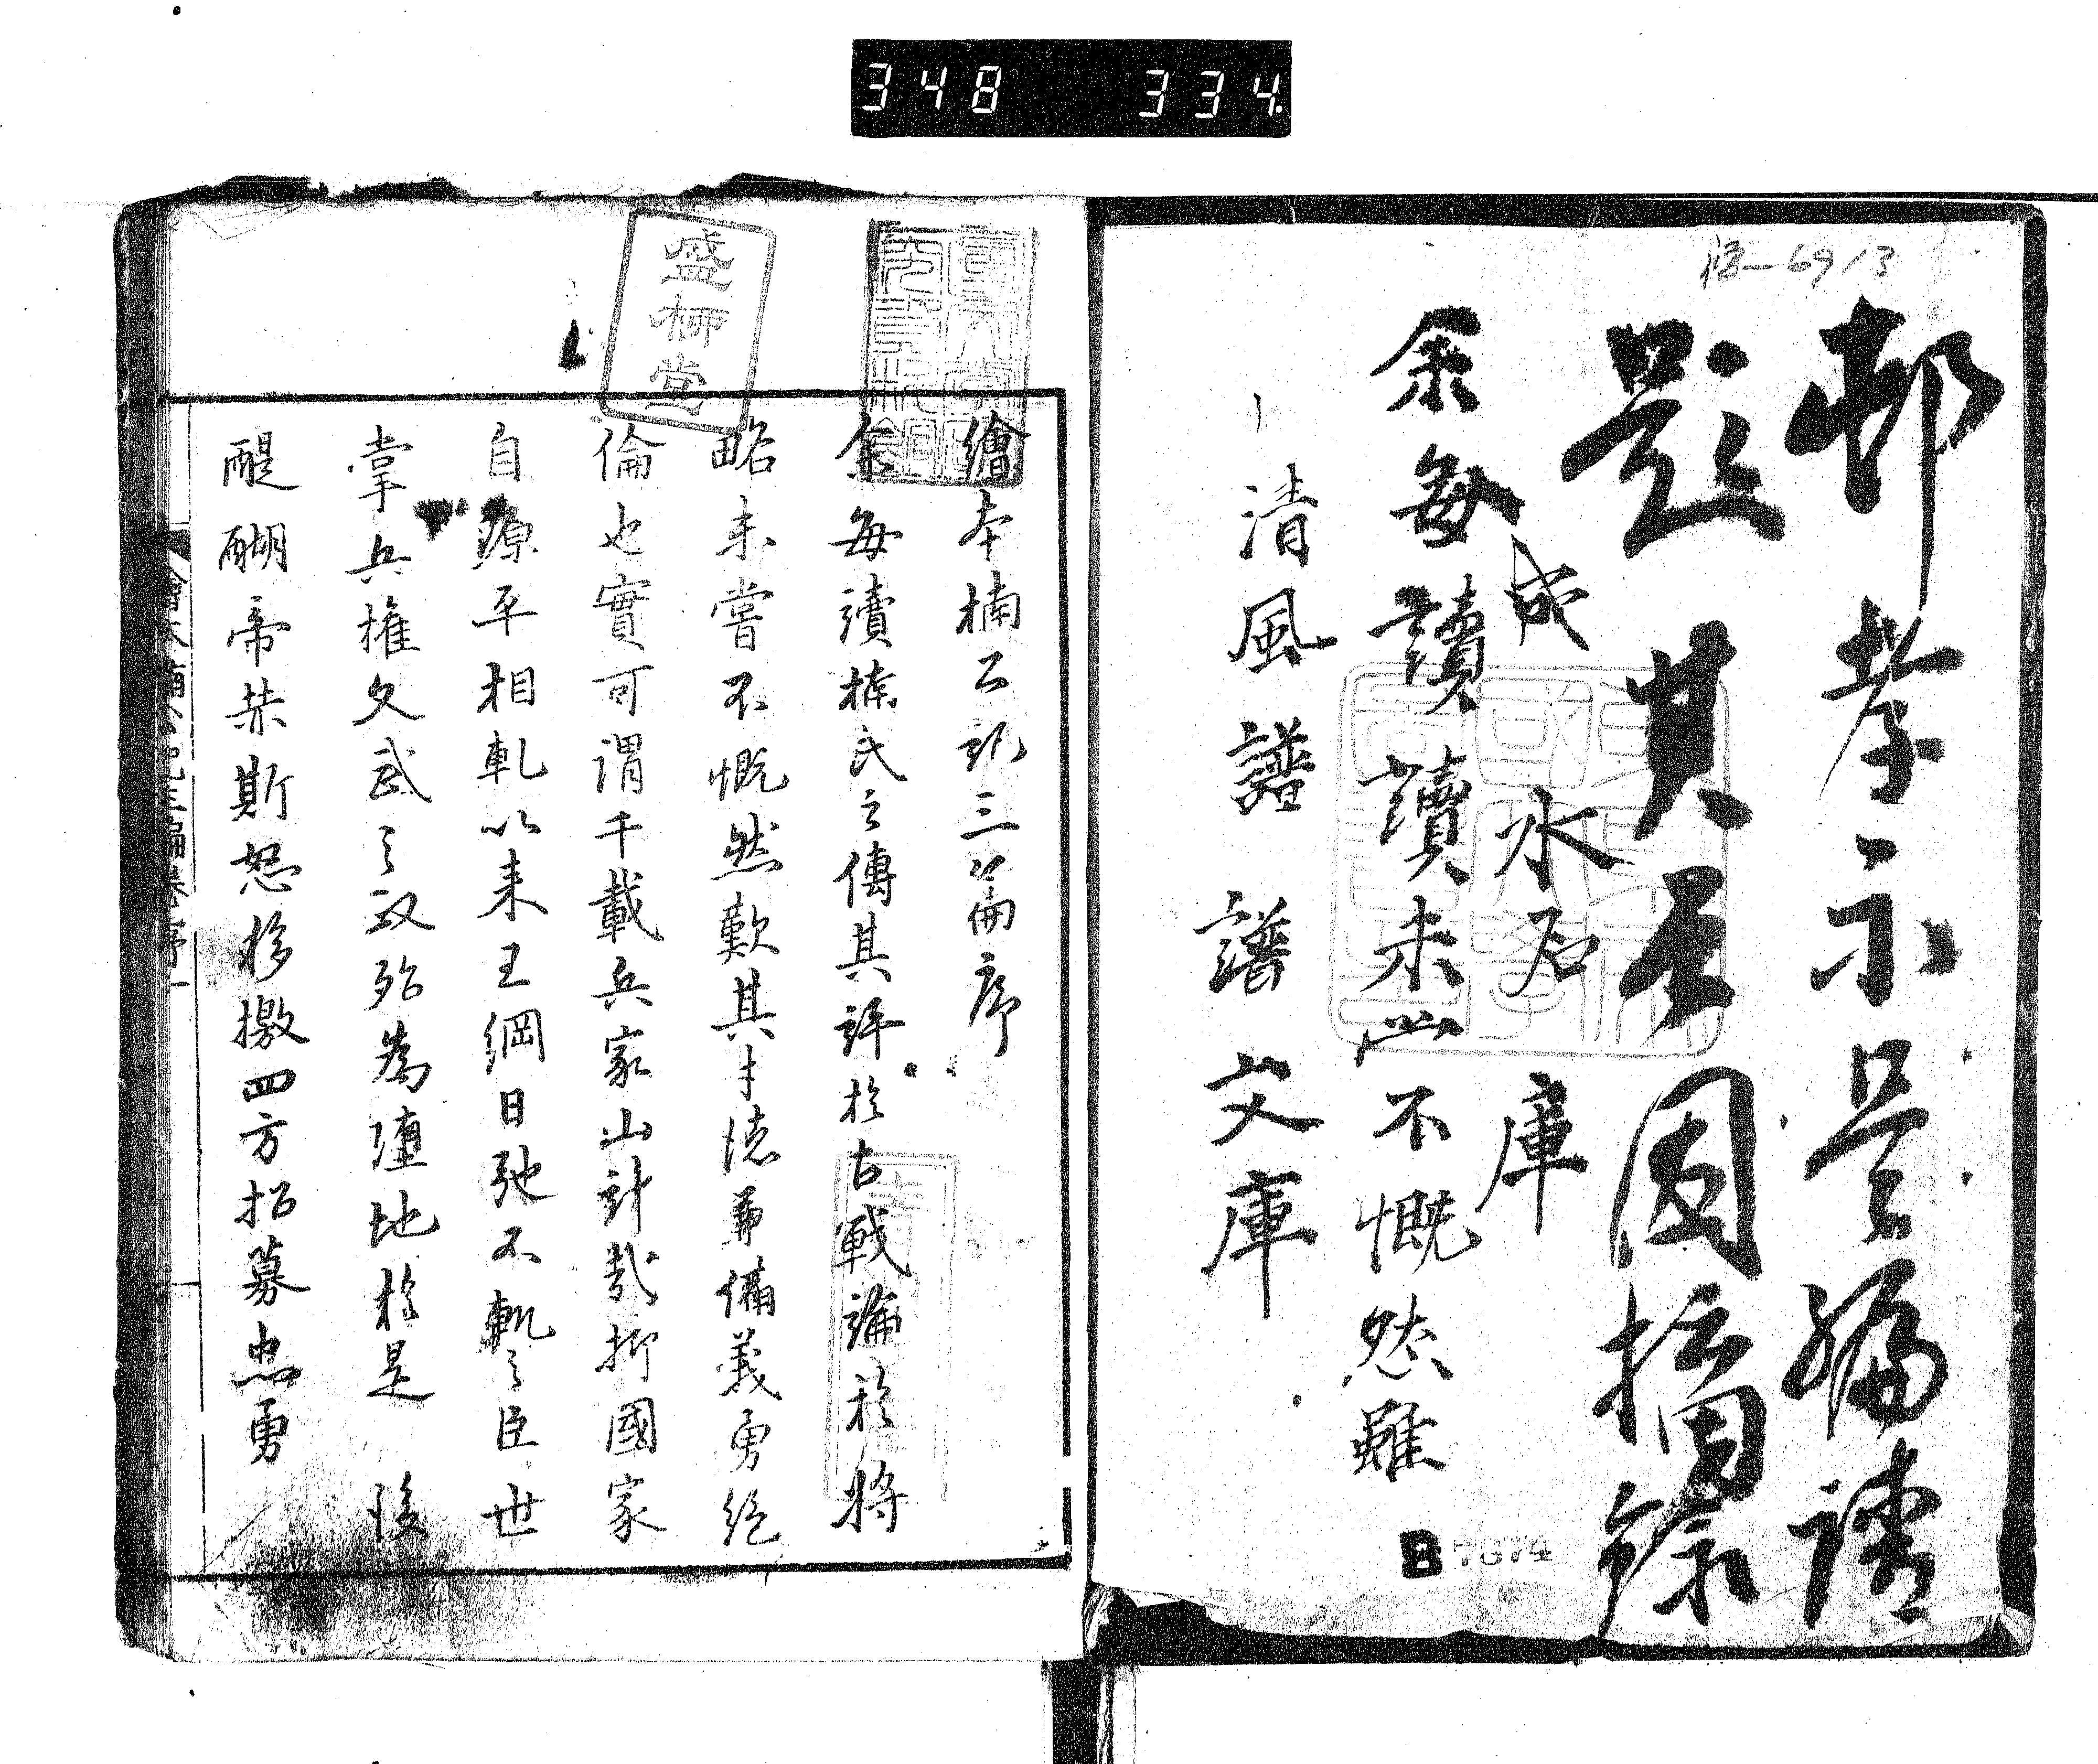 348 334
6913
邨孝示是編請
題其
因摘錄
成水石庫
余每讀讀未
不慨然雖
清風譜譜文庫
B7874
盛柳堂
繪本楠公記三篇序
余每讀楠氏之傳其評於古戦論於將
略未嘗不慨然歎其才徳兼備義勇絶
倫也實可謂千載兵家山斗哉抑國家
自源平相軋以来王綱日弛不軌之臣世
掌兵權文武之政殆為墮地於是 後
醍醐帝赫斯怒移檄四方招募忠勇
繪本楠公記三編巻序一